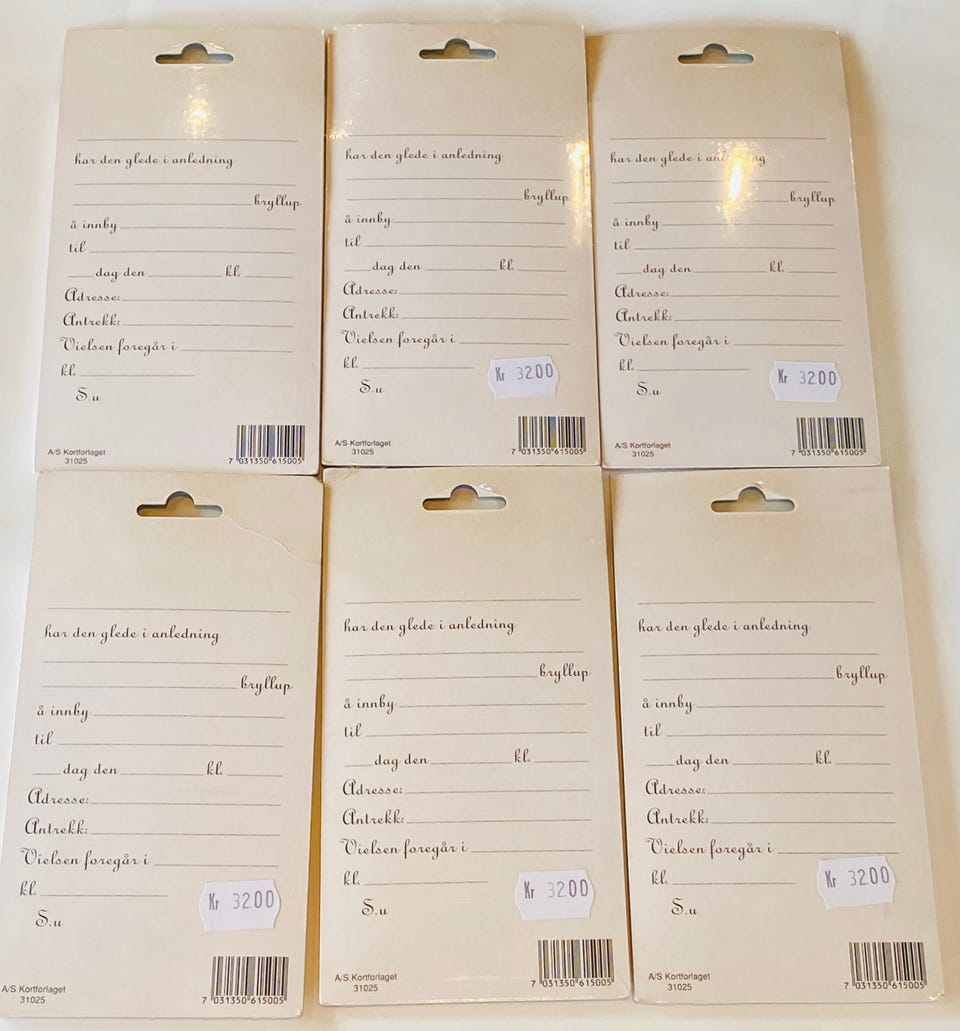 har den glede i anledning
bryllup
å innby
til
dag den kl.
Adresse:
Antrekk:
Vielsen foregår i
kl.
S.u
A/S Kortforlaget
31025
7 031350 615005
har den glede i anledning
bryllup
å innby
til
dag den kl.
Adresse:
Antrekk:
Vielsen foregår i
kl.
Kr 3200
S.u
A/S Kortforlaget
31025
7 031350 615005
har den glede i anledning
bryllup
å innby
til
dag den kl.
Adresse:
Antrekk:
Vielsen foregår i
kl.
Kr 3200
S.u
A/S Kortforlaget
31025
7 031350 615005
har den glede i anledning
bryllup
å innby
til
dag den kl.
Adresse:
Antrekk:
Vielsen foregår i
kl.
Kr 3200
S.u
A/S Kortforlaget
31025
7 031350 615005
har den glede i anledning
bryllup
å innby
til
dag den kl.
Adresse:
Antrekk:
Vielsen foregår i
kl.
Kr 3200
S.u
A/S Kortforlaget
31025
7 031350 615005
har den glede i anledning
bryllup
å innby
til
dag den kl.
Adresse:
Antrekk:
Vielsen foregår i
kl.
Kr 3200
S.u
A/S Kortforlaget
31025
7 031350 615005